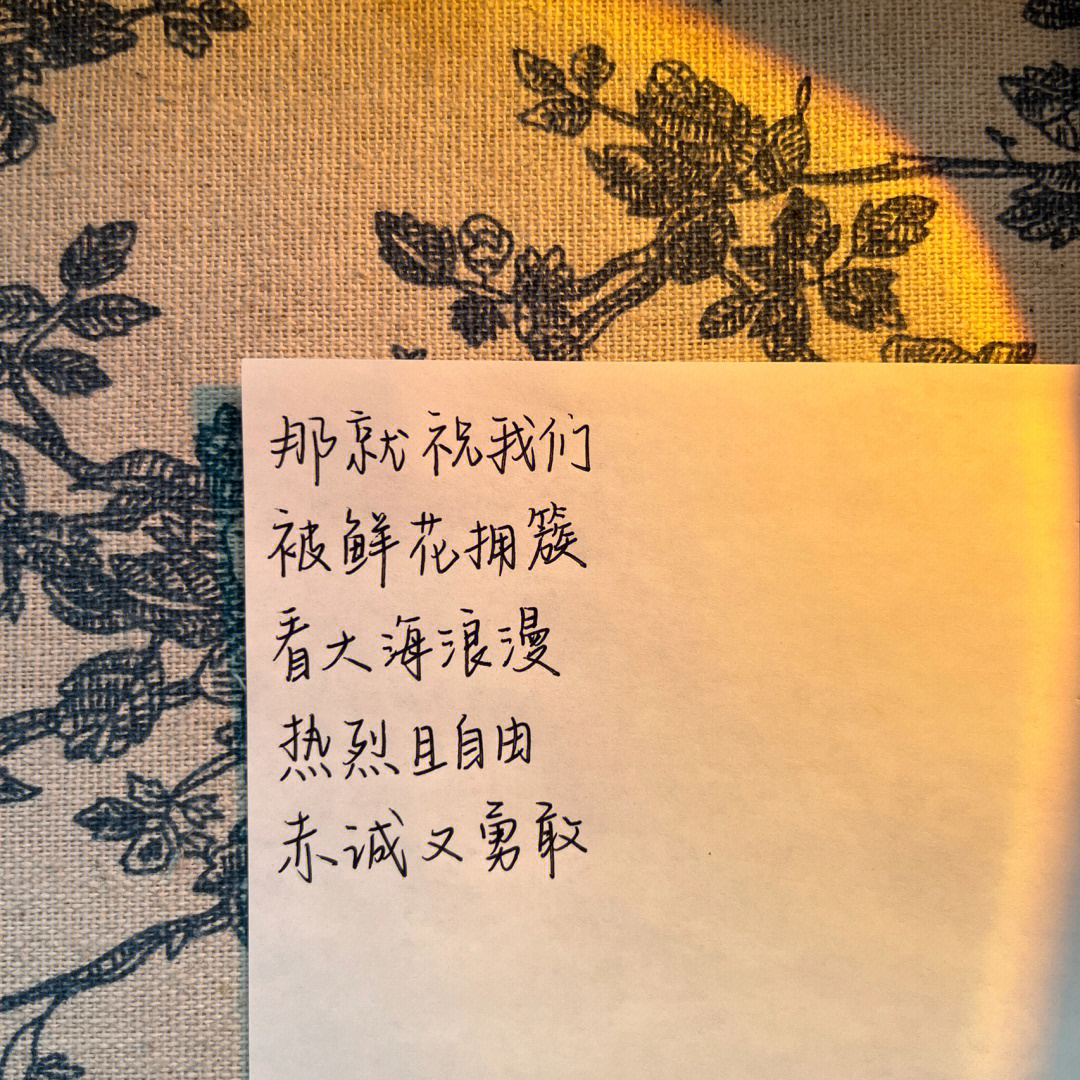 那就祝我们
被鲜花拥簇
看大海浪漫
热烈且自由
赤诚又勇敢